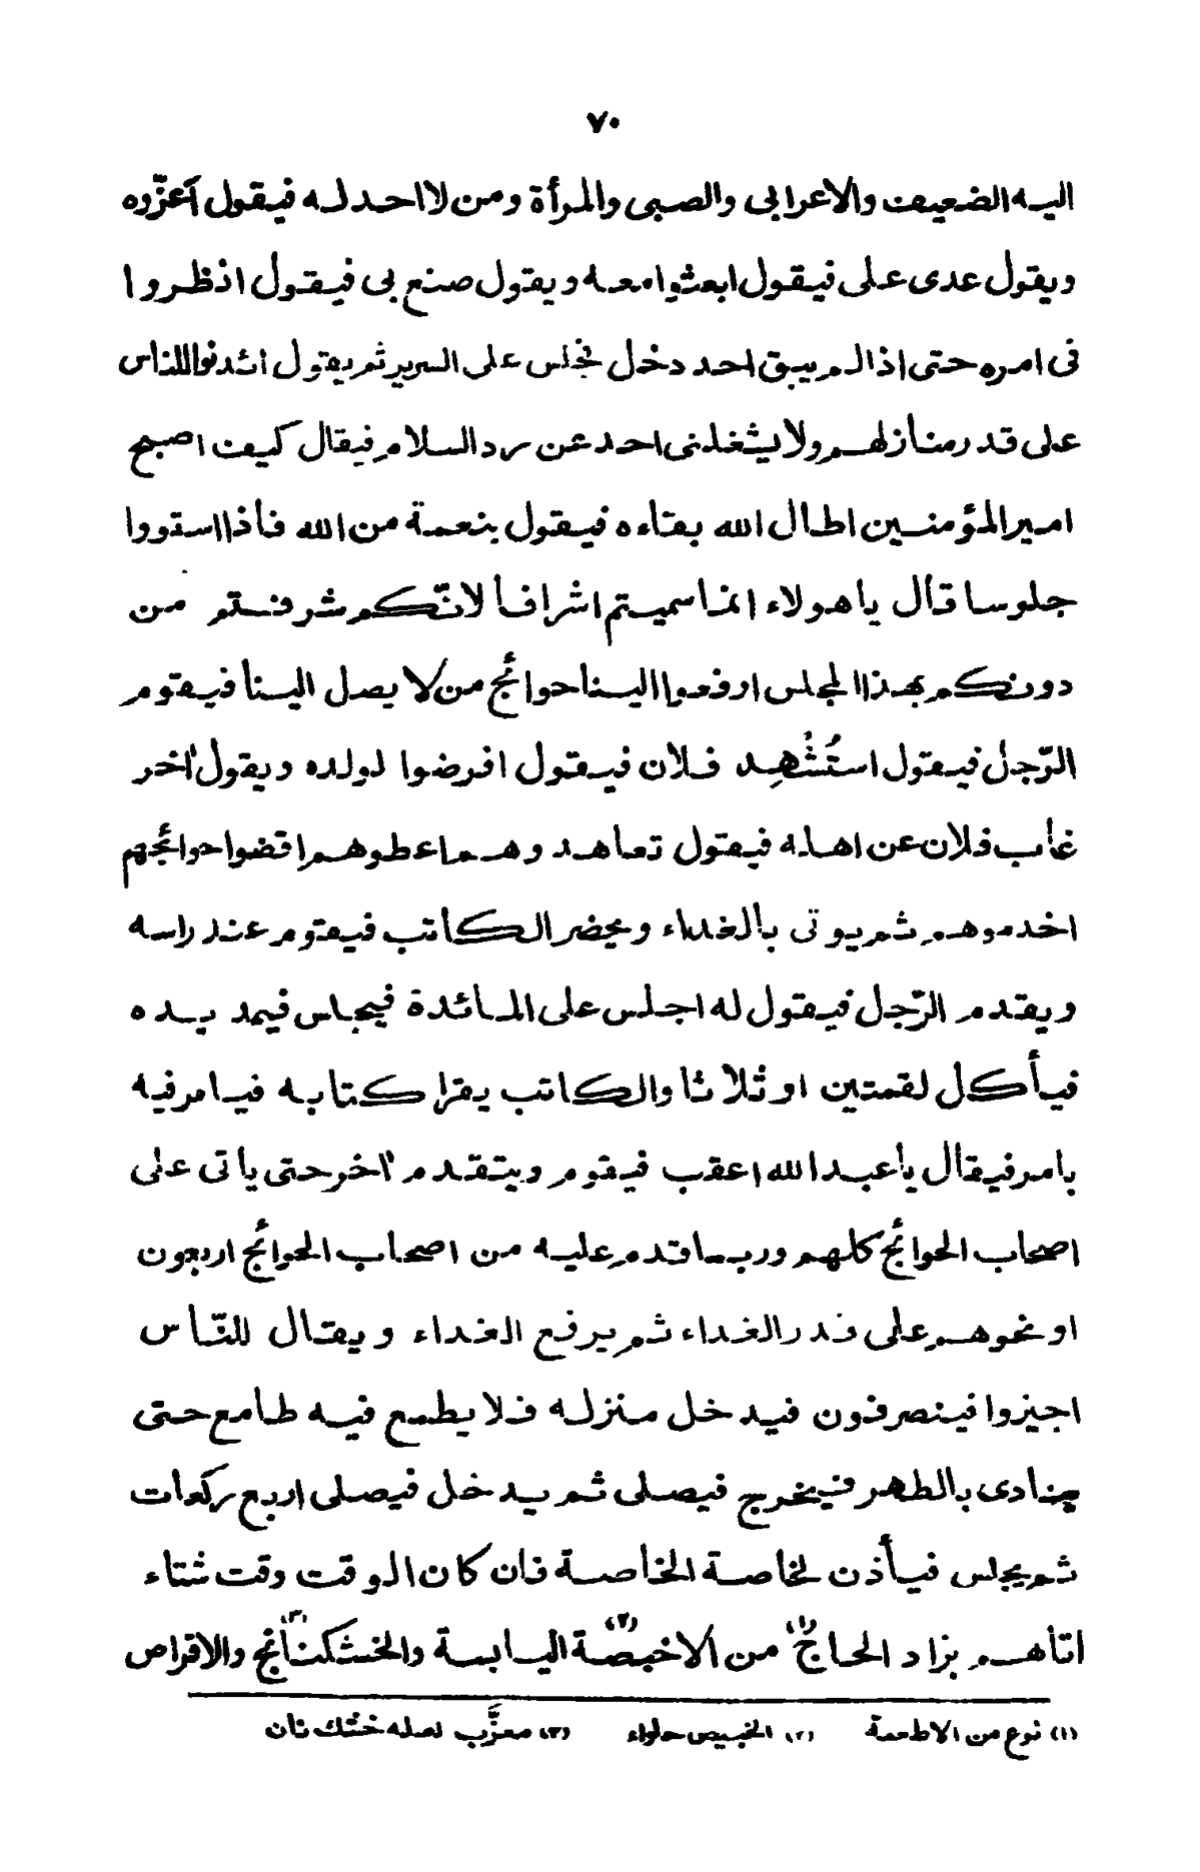 ٧٠
اليه الضعيف والاعرابى والصبى والمرأة ومن لا احد له فيقول أعزّره
ويقول عدى على فيقول ابعثوا معه ويقول صنع بى فيقول انظروا
فى امره حتى اذا لم يبق احد دخل فجلس على السرير ثم يقول ائذنوا للناس
على قدر منازلهم ولا يشغلنى احد عن رد السلام فيقال كيف اصبح
امير المؤمنين اطال الله بقاءه فيقول بنعمة من الله فأذا استووا
جلوسا قال يا هولاء انما سميتم اشرافا لانّكم شرفتم من
دونكم بهذا المجلس ارفعوا الينا حوائج من لا يصل الينا فيقوم
الرّجل فيقول استُشْهِد فلان فيقول افرضوا لولده ويقول اٰخر
غاب فلان عن اهله فيقول تعاهد وهم اعطوهم اقضوا حوائجهم
اخدموهم ثم يوتى بالغداء ويحضر الكاتب فيقوم عند راسه
ويقدم الرّجل فيقول له اجلس على المائدة فيجلس فيمد يده
فيأكل لقمتين او ثلاثا والكاتب يقرا كتابه فيامر فيه
بامر فيقال يا عبد الله اعقب فيقوم ويتقدم اٰخر حتى ياتى على
اصحاب الحوائج كلهم وربما قدم عليه من اصحاب الحوائج اربعون
او نحوهم على قدر الغداء ثم يرفع الغداء ويقال للنّاس
اجيزوا فينصرفون فيدخل منزله فلا يطمع فيه طامع حتى
ينادى بالظهر فيخرج فيصلى ثم يدخل فيصلى اربع ركعات
ثم يجلس فيأذن لخاصة الخاصة فان كان الوقت وقت شتاء
اتاهم بزاد الحاج (١) من الاخبصة (٢) اليابسة والخشكنانج (٣) والاقراص
(١) نوع من الاطعمة (٢) الخبيص حلواء (٣) معرَّب اصله خشك نان